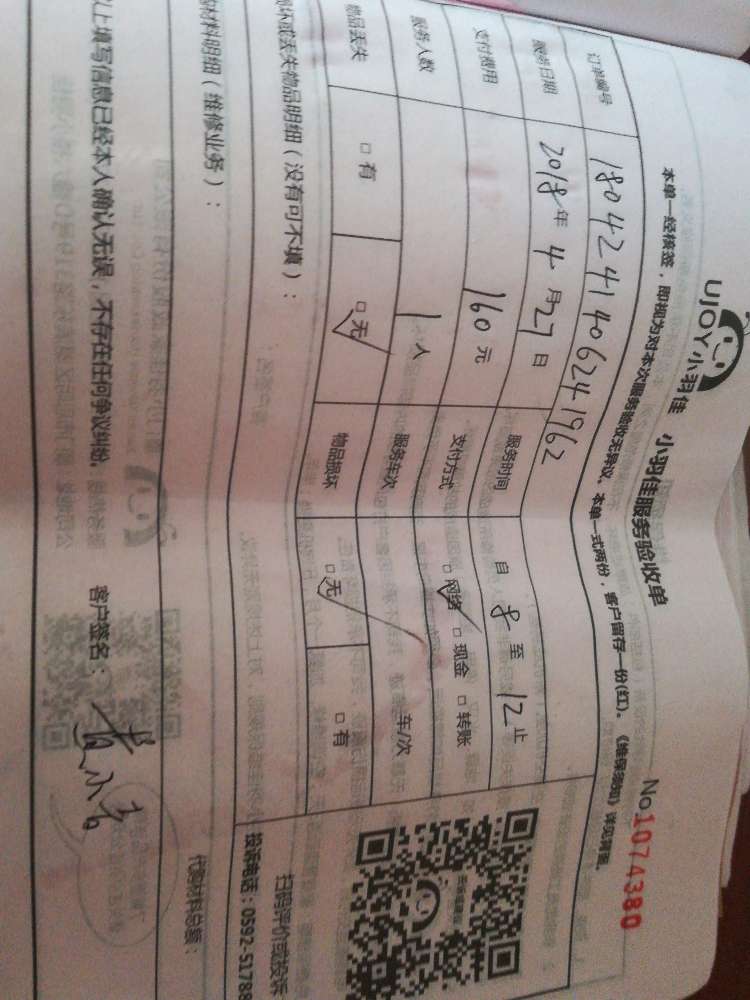 UJOY小羽佳 小羽佳服务验收单
No1074380
本单一经核签，即视为对本次服务验收无异议。本单一式两份，客户留存一份(红)。《维保须知》详见背面。
订单编号 1804241406241962
服务日期 2018年4月27日 服务时间 自8至12止
支付费用 160元 支付方式 □网络 □现金 □转账
服务人数 1人 服务车次 车/次
物品丢失 □有 □无 物品损坏 □无 □有
坏或丢失物品明细（没有可不填）：
扫码评价或投诉
投诉电话：0592-51788
材料明细（维修业务）：
代购材料总额：
上填写信息已经本人确认无误，不存在任何争议纠纷。 客户签名：